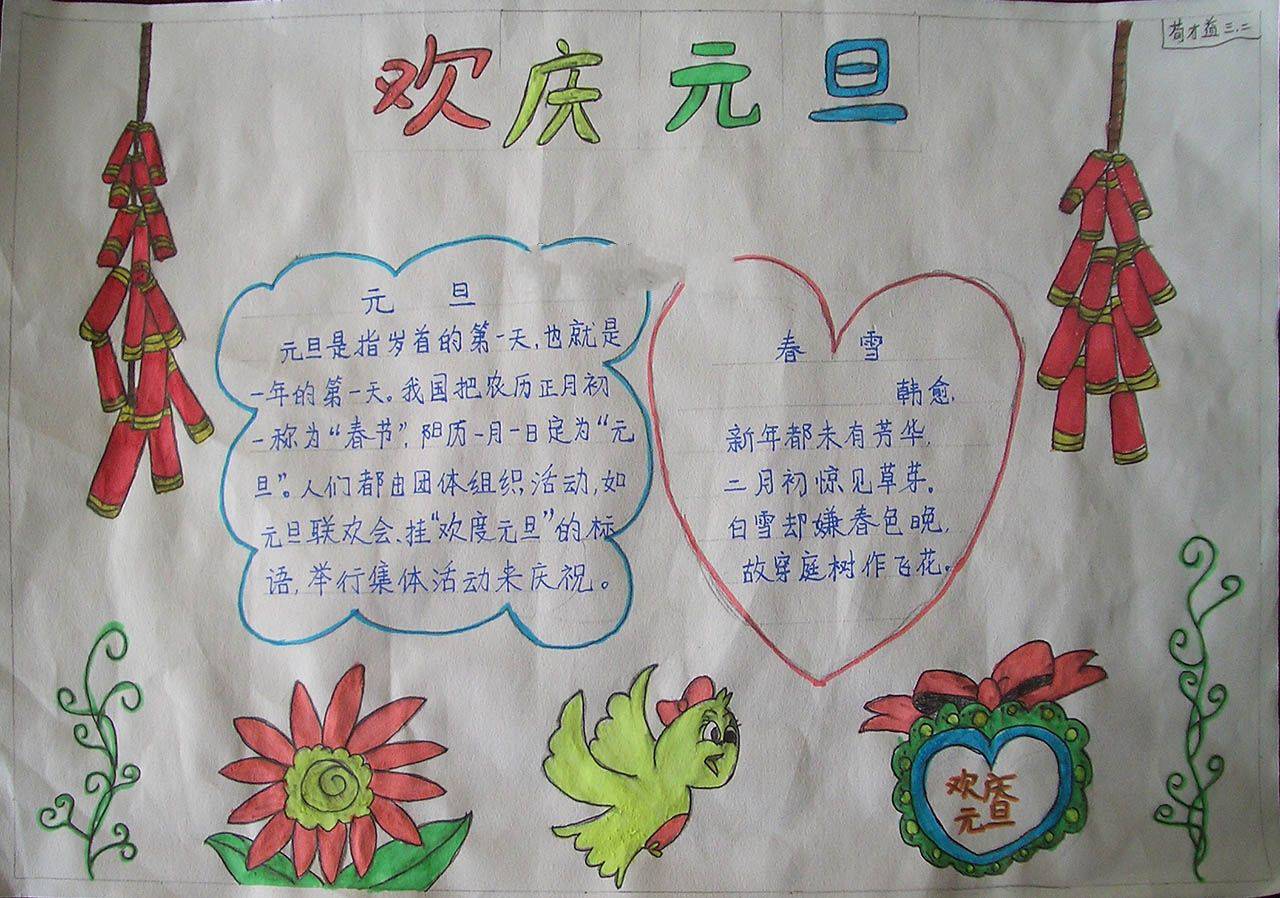 荀才益 三.二
欢庆元旦
元 旦
元旦是指岁首的第一天,也就是
一年的第一天。我国把农历正月初
一称为“春节”,阳历一月一日定为“元
旦”。人们都由团体组织活动,如
元旦联欢会、挂“欢度元旦”的标
语,举行集体活动来庆祝。
春 雪
韩愈.
新年都未有芳华,
二月初惊见草芽。
白雪却嫌春色晚,
故穿庭树作飞花。
欢庆
元旦